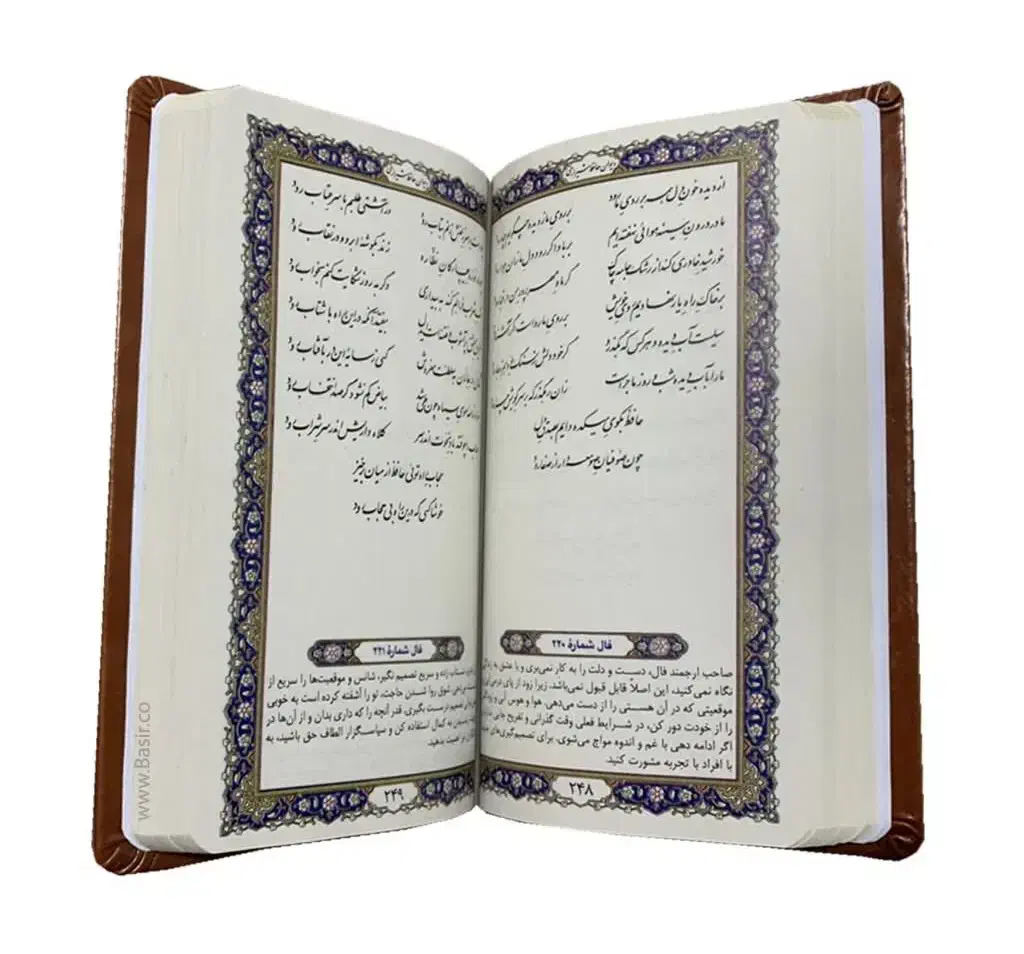 دیوان حافظ شیرازی
از دیده خون دل همه بر روی ما رود بر روی ما ز دیده چه گویم
ما در درون سینه هوائی نهفته ایم بر باد اگر رود دل ما زان هوا
خورشید خاوری کند از رشک جامه چاک گر ماه مهر پرور من در قبا
بر خاک راه یار نهادیم روی خویش بر روی ما رواست اگر آشنا
سیلست آب دیده و هر کس که بگذرد گر خود دلش ز سنگ
ما را بآب دیده شب و روز ماجراست زان رهگذر که بر سر کویش چرا
حافظ بکوی میکده دایم بصدق دل
چون صوفیان صومعه دار از صفا رود
فال شمارهٔ ۲۲۰
صاحب ارجمند فال، دست و دلت را به کار نمی‌بری و با عشق به زندگی
نگاه نمی‌کنید، این اصلاً قابل قبول نمی‌باشد، زیرا زود از پای درمی
موقعیتی که در آن هستی را از دست می‌دهی، هوا و هوس آنی و
را از خودت دور کن، در شرایط فعلی وقت گذرانی و تفریح جایی
اگر ادامه دهی با غم و اندوه مواج می‌شوی. برای تصمیم‌گیری‌های
با افراد با تجربه مشورت کنید.
۲۴۸
دیوان حافظ شیرازی
در آشتی طلبم با سر عتاب رود
نظاره زند بگوشهٔ ابرو و در نقاب رود
بیداری و گر به روز شکایت کنم بخواب رود
بیفتد آنکه در این راه با شتاب رود
کسی ز سایهٔ این در بآفتاب رود
سیاه چون بیاض کم نشود گر صد انتخاب رود
باد نخوت اندر سر کلاه داریش اندر سر شراب رود
حجاب راه توئی حافظ از میان برخیز
خوشا کسی که درین راه بی حجاب رود
فال شمارهٔ ۲۲۱
شتاب زده و سریع تصمیم نگیر، شانس و موقعیت‌ها را سریع از
شوق روا شدن حاجت، تو را آشفته کرده است به خوبی
درست بگیری، قدر آنچه را که داری بدان و از آن‌ها در
به کمال استفاده کن و سپاسگزار الطاف حق باشید، به
اهمیت بدهید.
۲۴۹
www.Basir.co